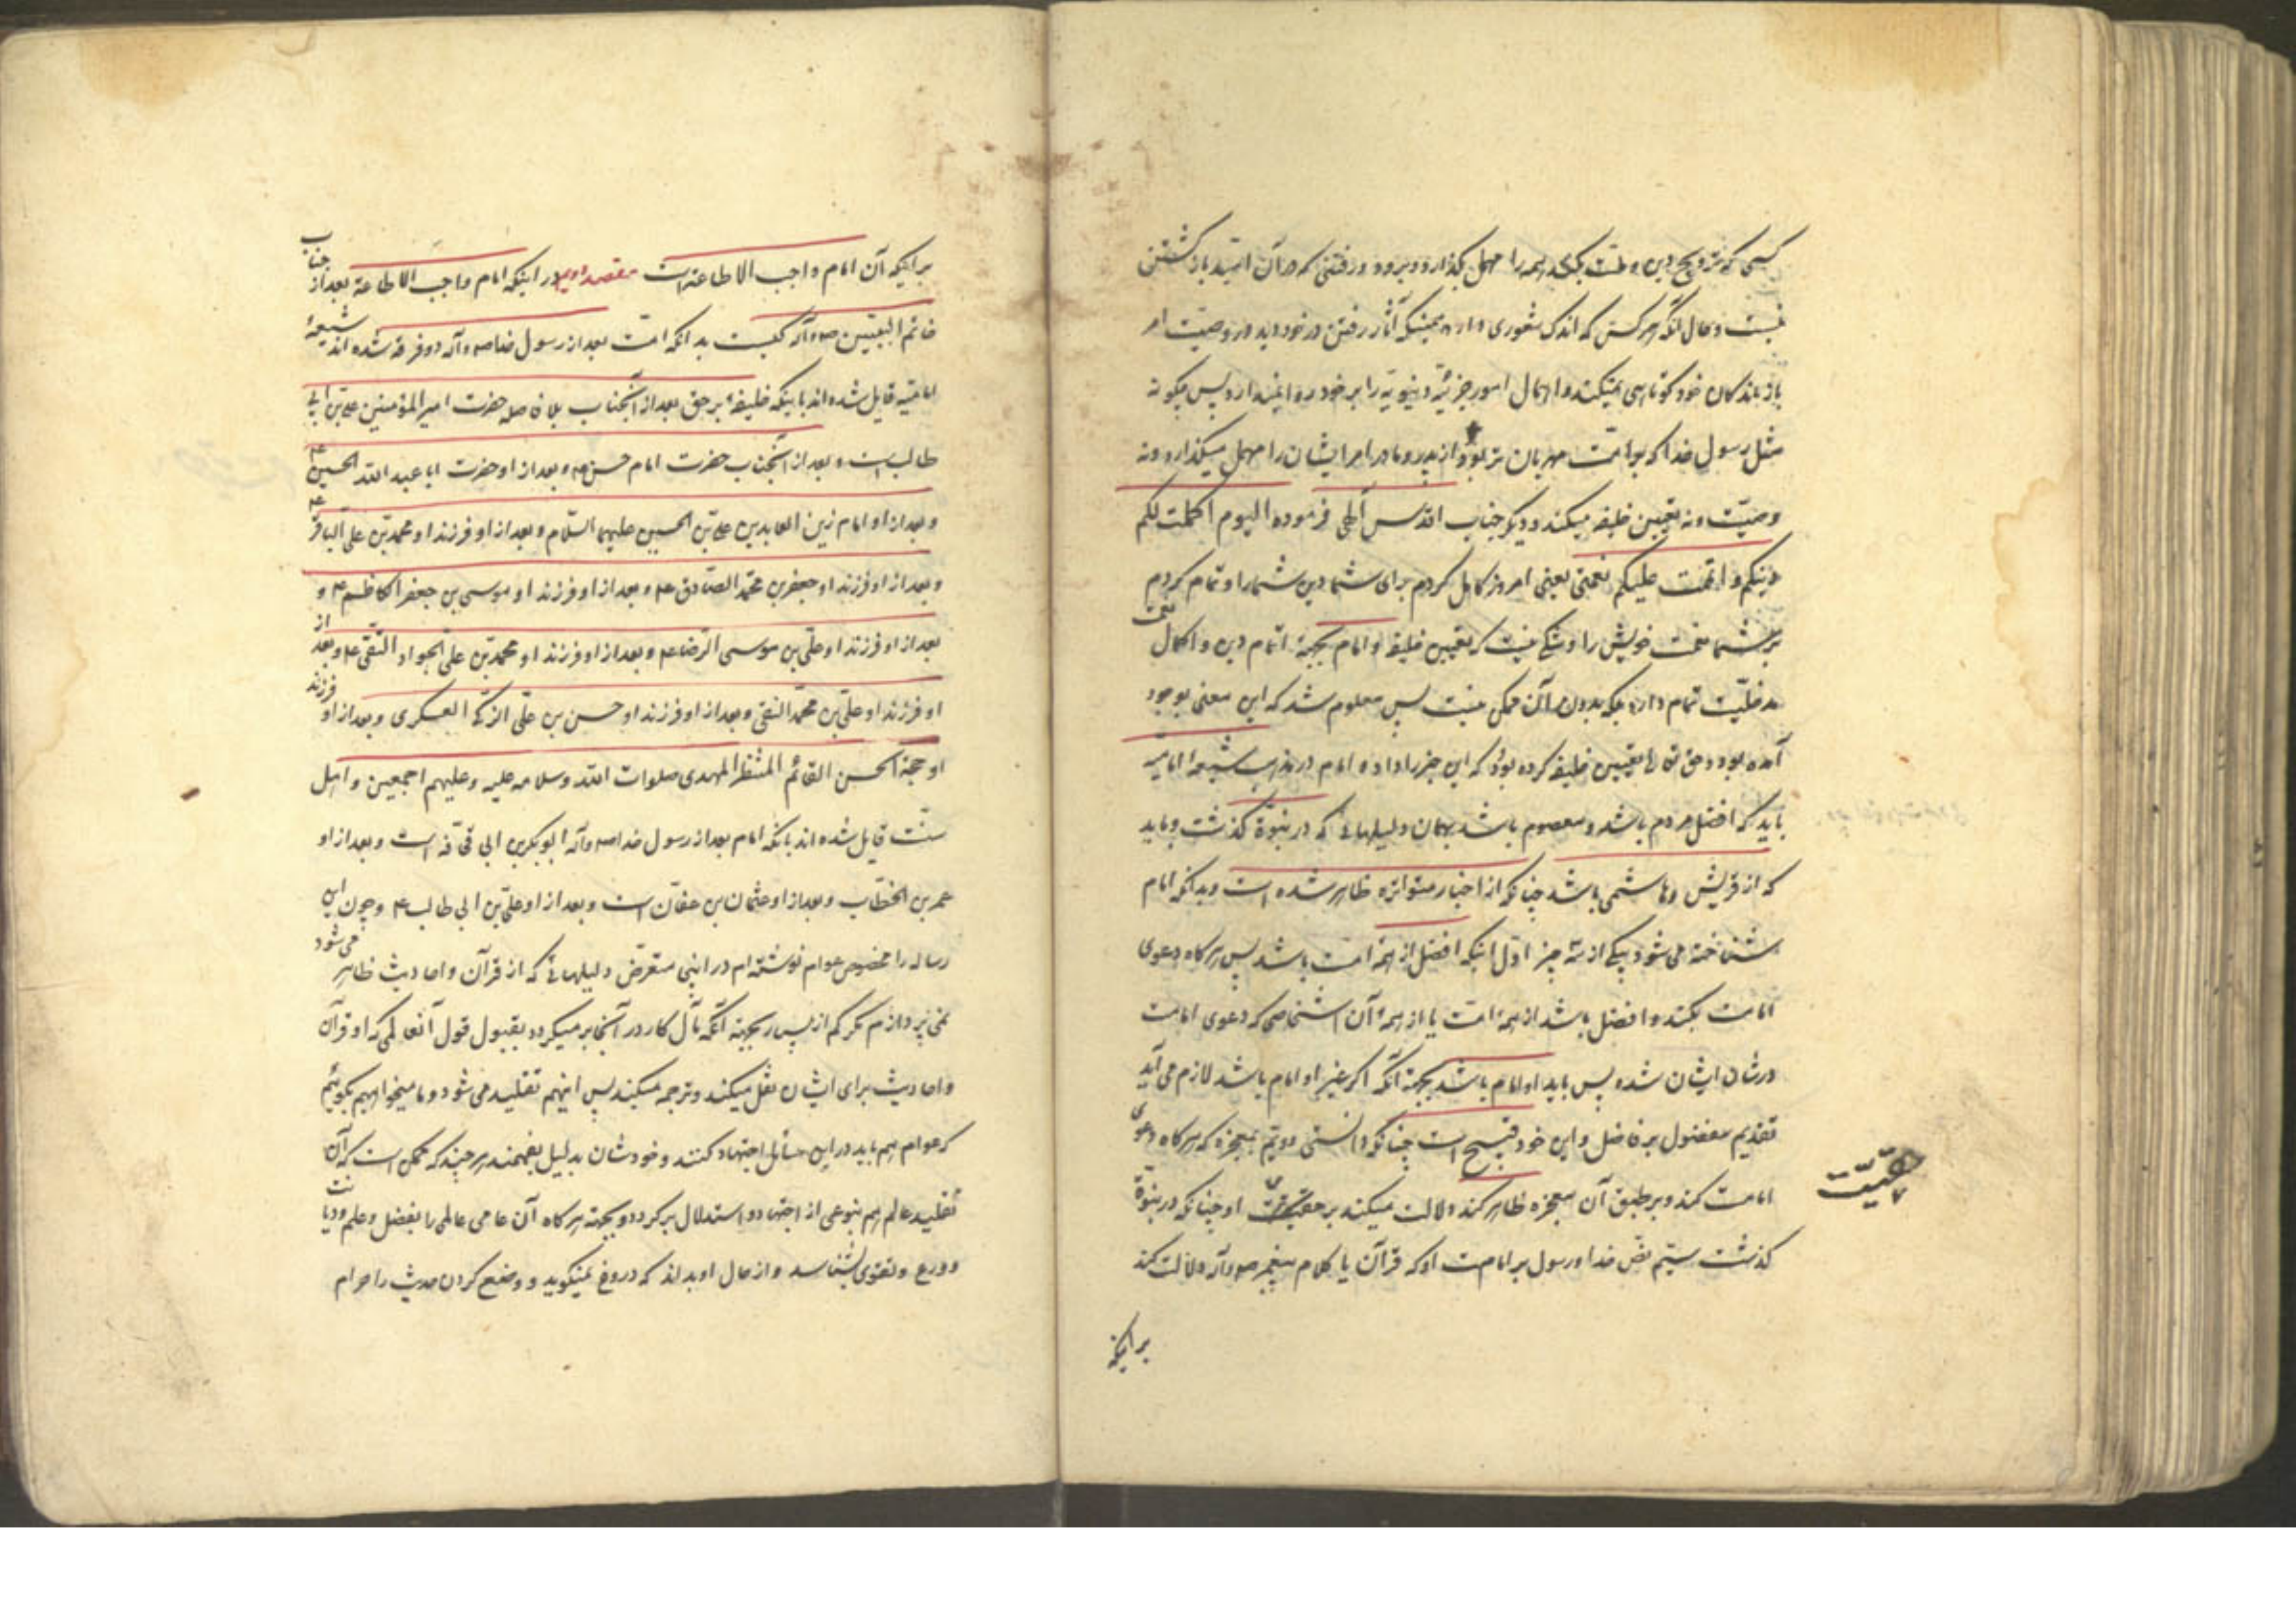 کسی که ترویج دین و ملت بکند همه را مهمل بگذارد و برود و رفتنی که در آن امید بازگشتن
نیست و حال آنکه هر کس که اندک شعوری دارد همینکه آثار رفتن در خود دید در وصیّت امر
بازماندکان خود کوتاهی نمیکند و اهمال امور جزئیّه دنیویّه را بر خود روا نمیدارد پس چکونه
مثل رسول خدا که بر امّت مهربان تر بود از پدر و مادر امر ایشان را مهمل میگذارد و نه
وصیّت و نه تعیین خلیفه میکند و دیگر جناب اقدس الهی فرموده الیوم اکملت لکم
دینکم و اتممت علیکم نعمتی یعنی امروز کامل کردم برای شما دین شما را و تمام کردم
بر شما نعمت خویش را و شکی نیست که تعیین خلیفه و امام بجهة اتمام دین و اکمال نعمت
مدخلیّت تمام دارد بلکه بدون آن ممکن نیست پس معلوم شد که این معنی بوجود
آمده بود و حق تعالی تعیین خلیفه کرده بود که این خبر را داده و امام در مذهب شیعهٔ امامیّه
باید که افضل مردم باشد و معصوم باشد بهمان دلیلهائی که در نبوّة گذشت و باید
که از قریش و هاشمی باشد چنانکه از اخبار متواتره ظاهر شده است و بدانکه امام
شناخته می شود بیکی از سه چیز اوّل اینکه افضل از همهٔ امت باشد پس هرکاه دعوی
امامت بکند و افضل باشد از همهٔ امّت یا از همهٔ آن اشخاصی که دعوی امامت
در شان ایشان شده پس باید او امام باشد بجهة آنکه اگر غیر او امام باشد لازم می آید
تقدیم مفضول بر فاضل و این خود قبیح است چنانکه دانستی دویّم بمعجزه که هرکاه دعوی
امامت کند و بر طبق آن معجزه ظاهر کند دلالت میکند بر حقیّت او چنانکه در نبوّة
حقیّت
گذشت سیّم نصّ خدا و رسول بر امامت او که قرآن یا کلام پیغمبر ص و آله دلالت کند
بر اینکه
بر اینکه آن امام واجب الاطاعة است مقصد دویم در اینکه امام واجب الاطاعة بعد از جناب
خاتم النبیّین ص و آله کیست بدانکه امّت بعد از رسول خدا ص و آله دو فرقه شده اند شیعهٔ
امامیّه قایل شده اند باینکه خلیفهٔ بر حق بعد از آنجناب بلا فاصله حضرت امیر المؤمنین علیّ بن ابی
طالب است و بعد از آنجناب حضرت امام حسن ع و بعد از او حضرت ابا عبد اللّه الحسین ع
و بعد از او امام زین العابدین علیّ بن الحسین علیهما السّلام و بعد از او فرزند او محمد بن علیّ الباقر ع
و بعد از او فرزند او جعفر بن محمّد الصّادق ع و بعد از او فرزند او موسی بن جعفر الکاظم ع و
بعد از او فرزند او علیّ بن موسی الرّضا ع و بعد از او فرزند او محمد بن علیّ الجواد التّقی ع و بعد از
او فرزند او علیّ بن محمّد النّقی و بعد از او فرزند او حسن بن علیّ الزّکی العسکری و بعد از او فرزند
او حجة الحسن القائم المنتظر المهدی صلوات اللّه و سلامه علیه و علیهم اجمعین و اهل
سنّت قایل شده اند بانکه امام بعد از رسول خدا ص و آله ابو بکر بن ابی قحّافه است و بعد از او
عمر بن الخطّاب و بعد از او عثمان بن عفّان است و بعد از او علیّ بن ابی طالب ع و چون این
رساله را مخصوص عوام نوشته ام در اینجا متعرّض دلیلهائی که از قرآن و احادیث ظاهر می شود
نمی پردازم مگر کم از بسیار بجهة آنکه مآل کار در آنجا بر میگردد بقبول قول آنعالمی که او قرآن
و احادیث برای ایشان نقل میکند و ترجمه میکند پس اینهم تقلید می شود و ما میخواهیم بگوئیم
که عوام هم باید در این مسائل اجتهاد کنند و خودشان بدلیل بفهمند هر چند که ممکن است که آن
تقلید عالم هم بنوعی از اجتهاد و استدلال بر کردد و بجهة هرکاه آن عامی عالمی را بفضل و علم و دیانت
و ورع و تقوی بشناسد و از حال او بداند که دروغ نمیگوید و وضع کردن حدیث را حرام